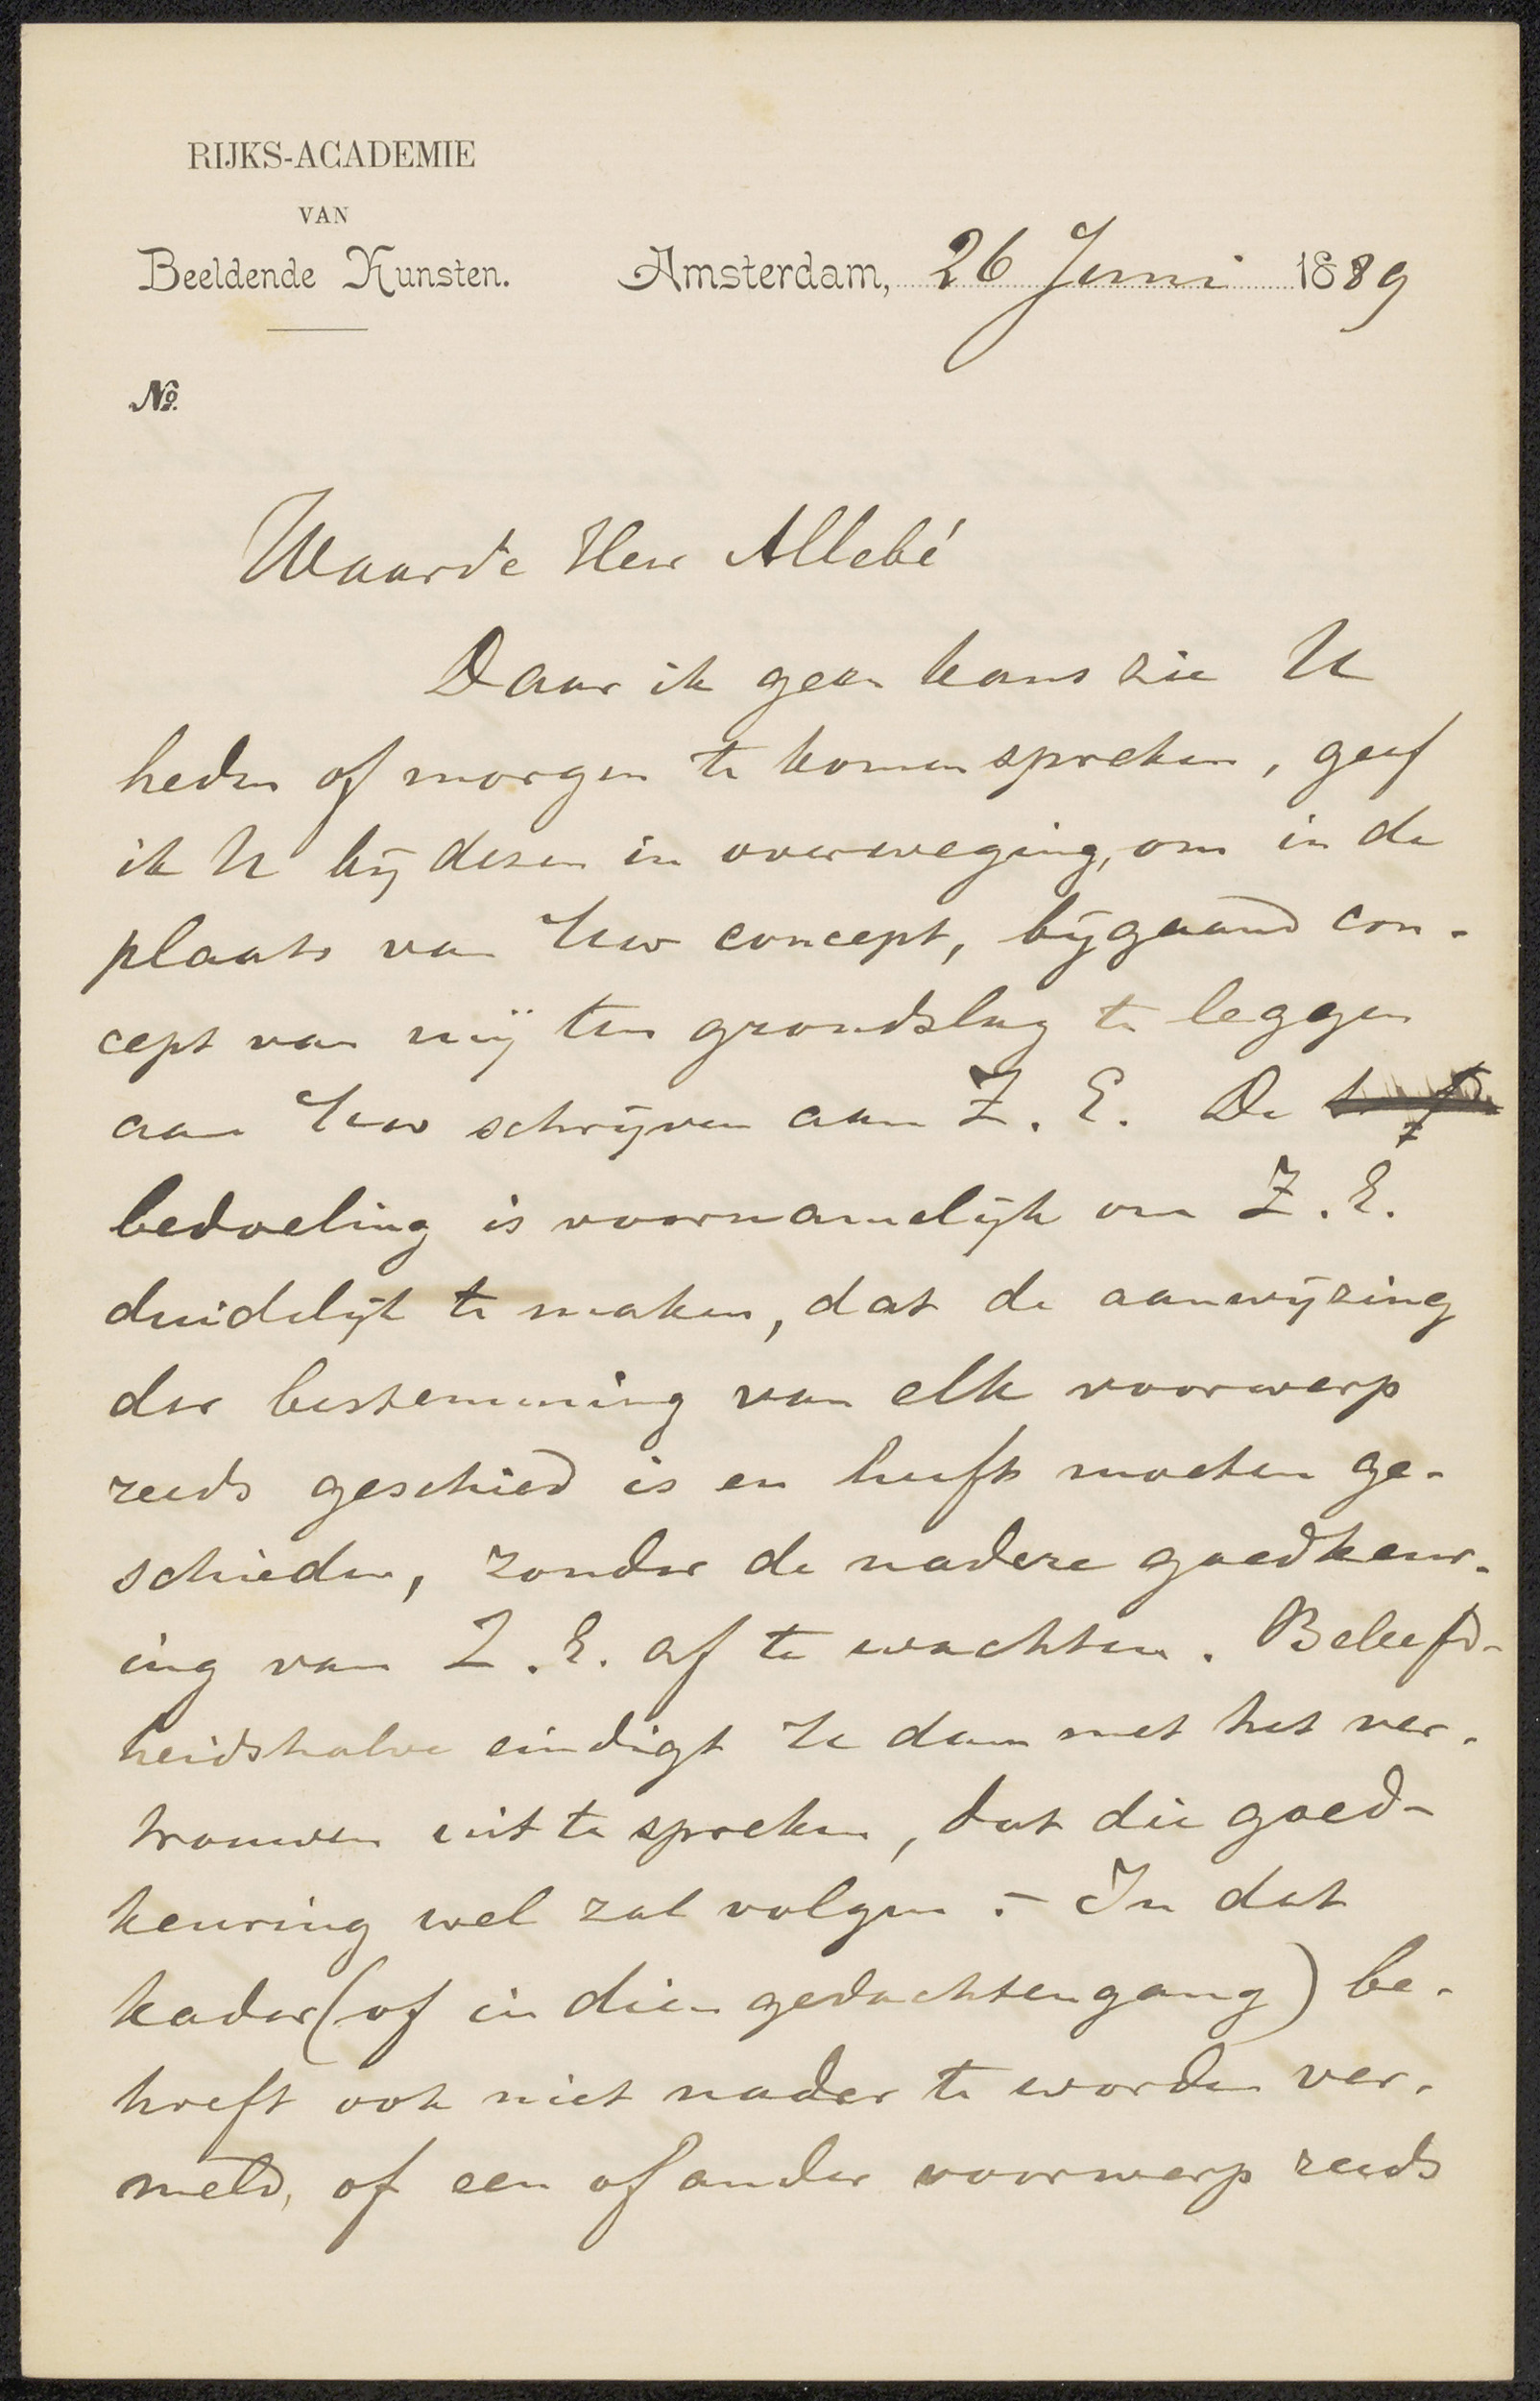 RIJKS-ACADEMIE
VAN
Beeldende Kunsten.
Amsterdam, 26 Juni 1889
No.
Waarde Heer Allebé
Daar ik geen kans zie U
heden of morgen te komen spreken, geef
ik U bij dezen in overweging, om in de
plaats van Uw concept, bijgaand con-
cept van mij ten grondslag te leggen
aan Uw schrijven aan Z. E. De
bedoeling is voornamelijk om Z. E.
duidelijk te maken, dat de aanwijzing
der bestemming van elk voorwerp
reeds geschied is en heeft moeten ge-
schieden, zonder de nadere goedkeur-
ing van Z. E. af te wachten. Beleefd-
heidshalve eindigt U dan met het ver-
trouwen uit te spreken, dat die goed-
keuring wel zal volgen. - In dat
kader (of in dien gedachtengang) be-
hoeft ook niet nader te worden ver-
meld, of een of ander voorwerp reeds